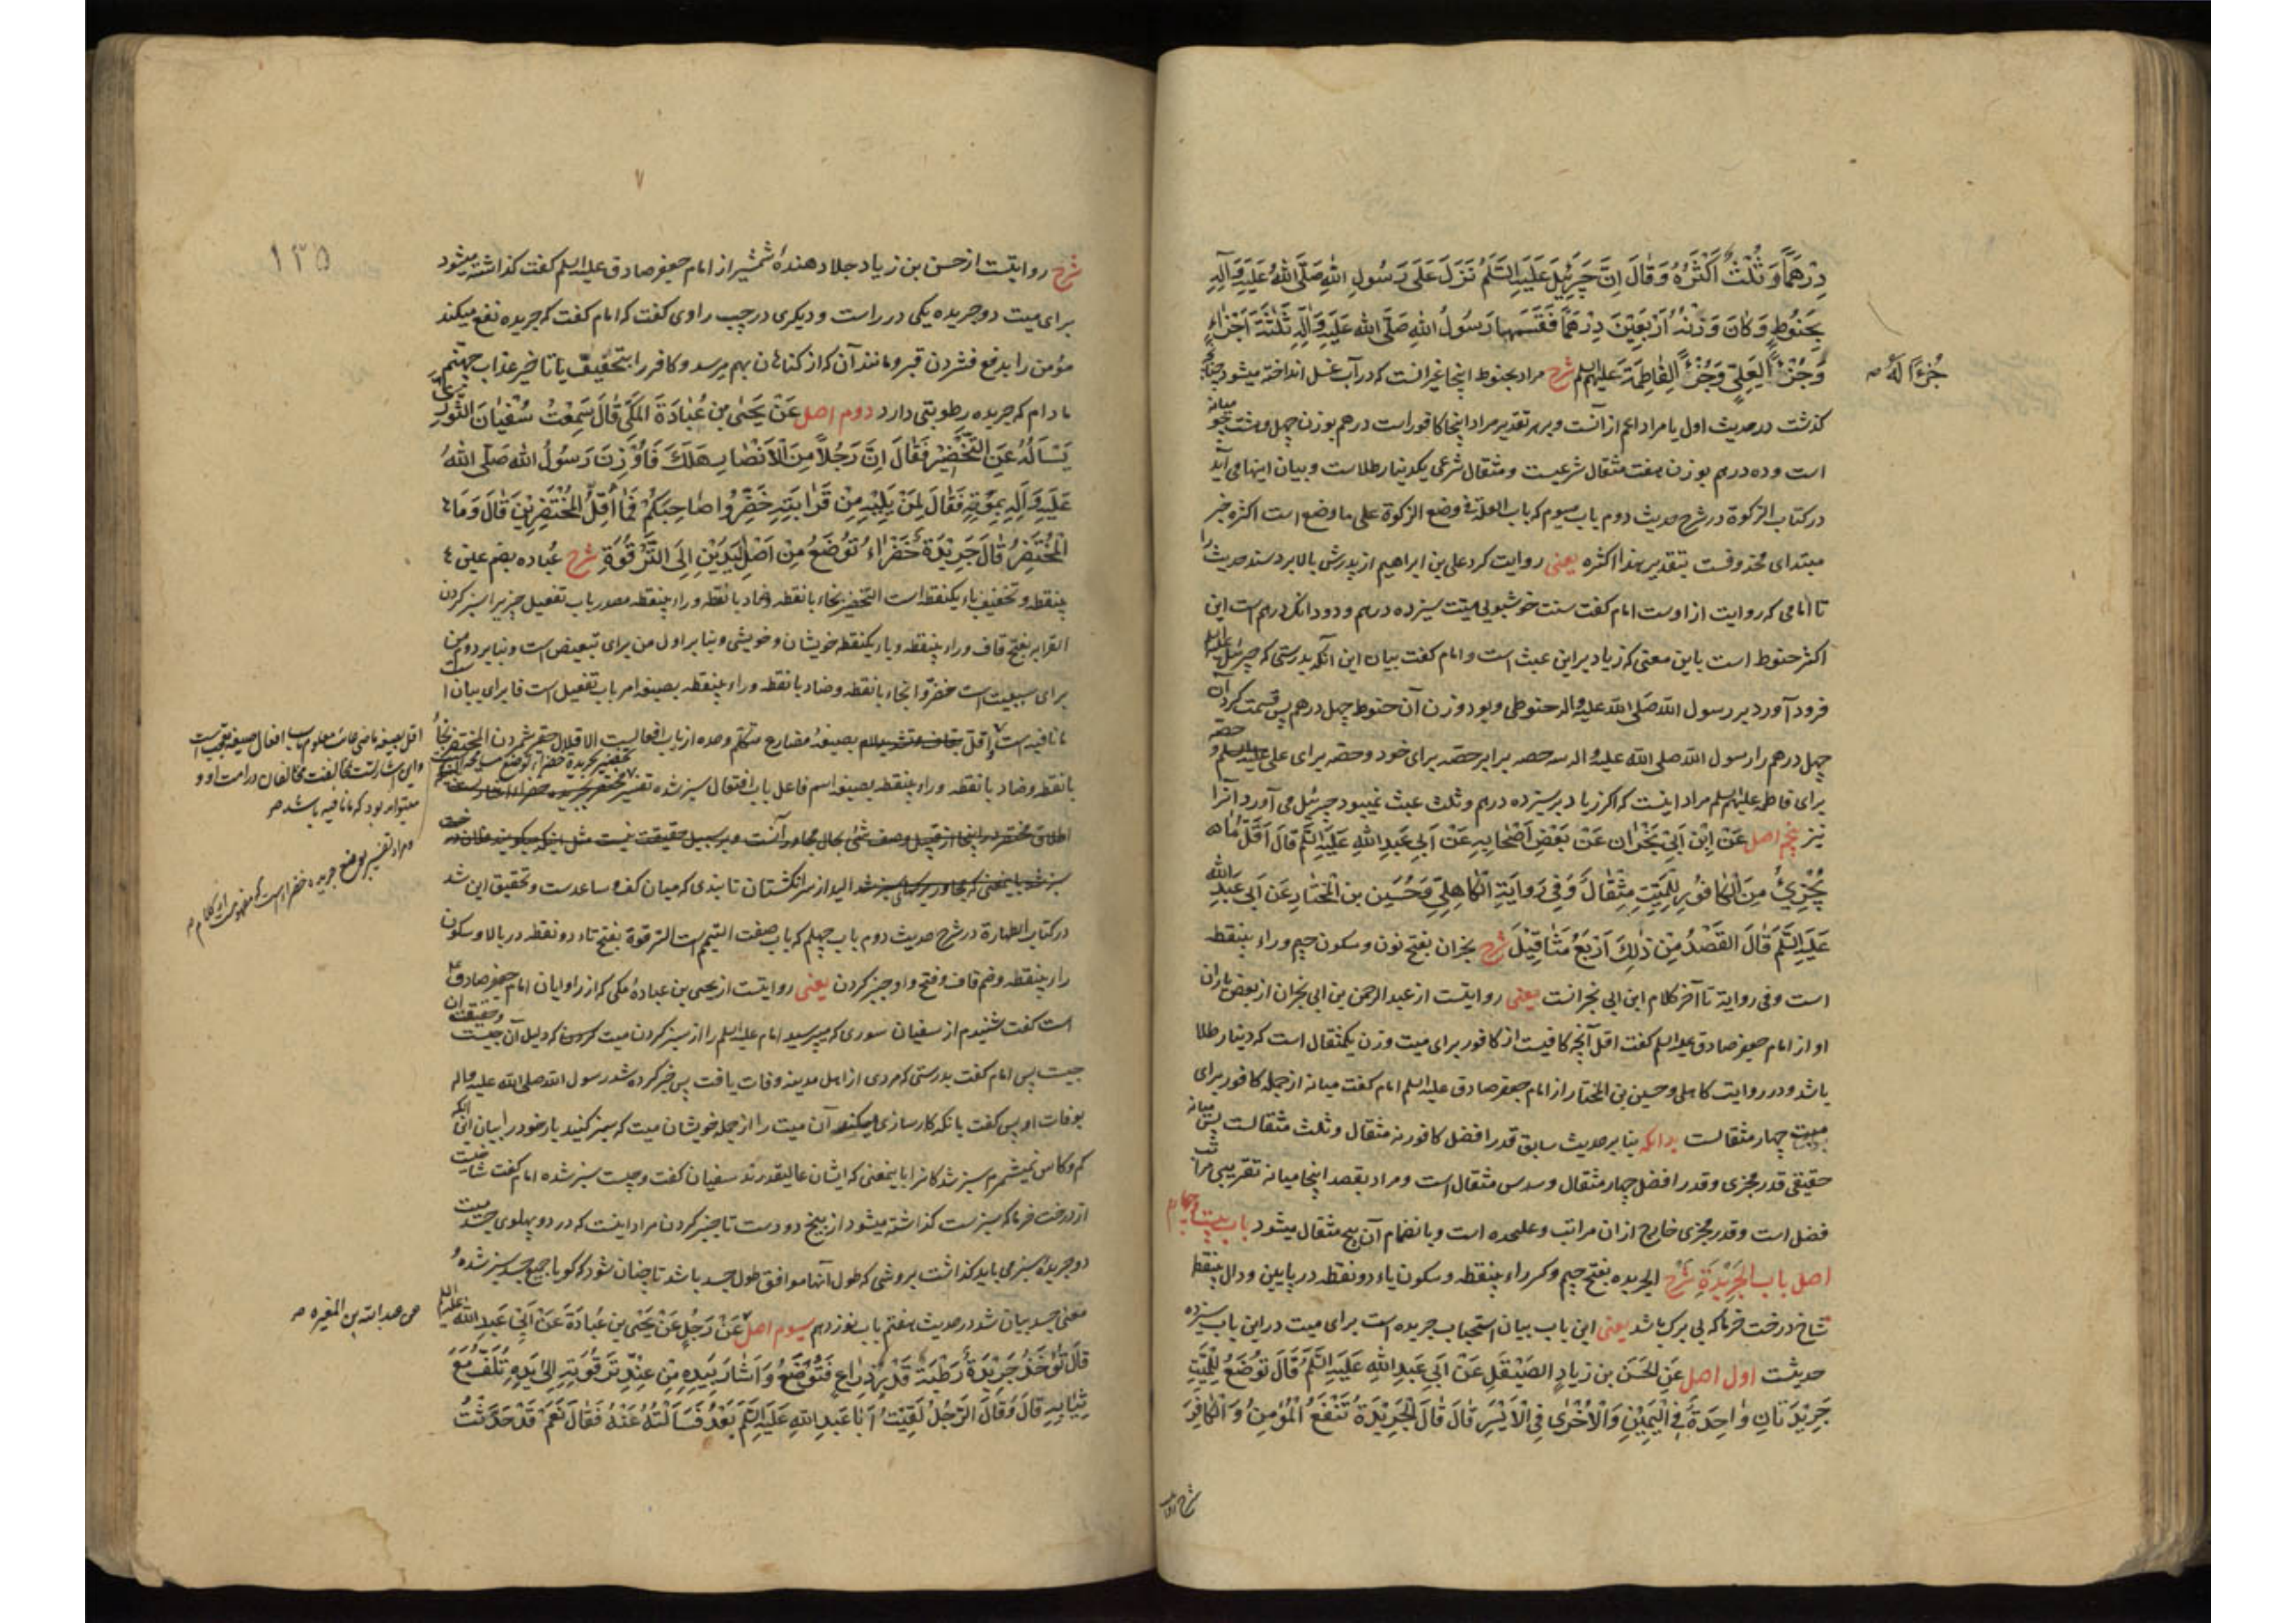 دِرْهَمًا وَ ثُلْثٌ اَكْثَرُهُ وَ قَالَ اِنَّ جَبْرَئِيلَ عَلَيْهِ السَّلَمُ نَزَلَ عَلَى رَسُولِ اللهِ صَلَّى اللهُ عَلَيْهِ وَ آلِهِ
بِحَنُوطٍ وَ كَانَ وَزْنُهُ اَرْبَعِيْنَ دِرْهَمًا فَقَسَمَهَا رَسُولُ اللهِ صَلَّى الله عَلَيْهِ وَ آلِهِ ثَلَثَةَ اَجْزَاءٍ
جُزْءًا لَهُ صه
وَ جُزْءًا لِعَلِيٍّ وَ جُزْءًا لِفَاطِمَةَ عليهم السلم شرح مراد بحنوط اینجا غیر انست که در آب غسل انداخته میشود چنانچه
کذشت در حدیث اول یا مراد اعم از آنست و بر هر تقدیر مراد اینجا کافور است درهم بوزن چهل و هشت جو میانه
است و ده درهم بوزن هفت مثقال شرعیست و مثقال شرعی یکدینار طلاست و بیان اینها می آید
در کتاب الزکوة در شرح حدیث دوم باب سیوم که باب العلة فی وضع الزکوة علی ما وضع است اکثره خبر
مبتدای محذوفست بتقدیر هذا اکثره یعنی روایت کرد علی بن ابراهیم از پدرش بالا برد سند حدیث را
تا امامی که روایت از اوست امام کفت سنت خوشبویی میت سیزده درهم و دو دانک درهم است این
اکثر حنوط است باین معنی که زیاد بر این عبث است و امام کفت بیان این آنکه بدرستی که جبرئیل علیه السلم
فرود آورد بر رسول الله صلی الله علیه و اله حنوطی و بود وزن آن حنوط چهل درهم پس قسمت کرد آن
چهل درهم را رسول الله صلی الله علیه و اله سه حصه برابر حصه برای خود و حصه برای علی و حصه
برای فاطمه علیهم السلم مراد اینست که اکر زیاد بر سیزده درهم و ثلث عبث نمیبود جبرئیل می آورد آنرا
نیز پنجم اصل عَنْ اِبْنِ اَبِيْ نَجْرَانَ عَنْ بَعْضِ اَصْحَابِهِ عَنْ اَبِي عَبْدِ اللهِ عَلَيْهِ السَّلَمُ قَالَ اَقَلُّ مَا
يُجْزِئُ مِنَ الْكَافُوْرِ لِلْمَيِّتِ مِثْقَالٌ وَ فِي رِوَايَةِ الْكَاهِلِيِّ وَ حُسَيْنِ بْنِ الْمُخْتَارِ عَنْ اَبِيْ عَبْدِ اللهِ
عَلَيْهِ السَّلَمُ قَالَ الْقَصْدُ مِنْ ذٰلِكَ اَرْبَعُ مَثَاقِيْلَ شرح نجران بفتح نون و سکون جیم و راء بینقطه
است و فی روایة تا آخر کلام ابن ابی نجرانست یعنی روایتست از عبد الرحمن بن ابی نجران از بعض یاران
او از امام جعفر صادق علیه السلم کفت اقل آنچه کافیست از کافور برای میت وزن یکمثقال است که دینار طلا
باشد و در روایت کاهلی و حسین بن المختار از امام جعفر صادق علیه السلم امام کفت میانه از جمله کافور برای
میت چهار مثقالست بدانکه بنا بر حدیث سابق قدر افضل کافور نه مثقال و ثلث مثقالست پس میانه
حقیقی قدر مجزی و قدر افضل چهار مثقال و سدس مثقال است و مراد بقصد اینجا میانه تقریبی مراتب
فضل است و قدر مجزی خارج از ان مراتب و علیحده است و بانضمام آن پنج مثقال میشود باب بیست و چهارم
اصل باب الجَرِيْدَةِ شرح الجریده بفتح جیم و کسر راء بینقطه و سکون یاء دو نقطه در پایین و دال بینقطه
شاخ درخت خرما که بی برک باشد یعنی این باب بیان استحباب جریده است برای میت در این باب سیزده
حدیثست اول اصل عَنِ الْحَسَنِ بن زيادٍ الصَيْقَلِ عَنْ اَبِي عَبْدِ اللهِ عَلَيْهِ السَّلَمُ قَالَ تُوضَعُ لِلْمَيِّتِ
جَرِيْدَتَانِ وَاحِدَةٌ فِي الْيَمِيْنِ وَ الْاُخْرٰى فِي الْاَيْسَرِ قَالَ قَالَ الْجَرِيْدَةُ تَنْفَعُ الْمُؤْمِنَ وَ الْكَافِرَ
شرح روایت
٧
١٣٥
شرح روایتست از حسن بن زیاد جلا دهندهٔ شمشیر از امام جعفر صادق علیه السلم کفت کذاشته میشود
برای میت دو جریده یکی در راست و دیکری در چپ راوی کفت که امام کفت که جریده نفع میکند
مؤمن را بدفع فشردن قبر و مانند آن که از کناهان بهم میرسد و کافر را بتخفیف یا تاخیر عذاب جهنم
مادام که جریده رطوبتی دارد دوم اصل عَنْ يَحْيَى بن عُبَادَةَ المَكِّي قَالَ سَمِعْتُ سُفْيَانَ الثَّوْرِيَّ
يَسْاَلُهُ عَنِ التَّخْضِيْرِ فَقَالَ اِنَّ رَجُلًا مِنَ الْاَنْصَارِ هَلَكَ فَاُوْذِنَ رَسُولُ اللهِ صَلَّى اللهُ
عَلَيْهِ وَ اٰلِهِ بِمَوْتِهِ فَقَالَ لِمَنْ يَلِيْهِ مِنْ قَرَابَتِهِ خَضِّرُوا صَاحِبَكُمْ فَمَا اُقِلُّ الْمُخْتَضِرِيْنَ قَالَ وَ مَا
الْمُخْتَضِرُ قَالَ جَرِيْدَةٌ خَضْرَاءُ تُوْضَعُ مِنْ اَصْلِ الْيَدَيْنِ اِلَى التَّرْقُوَةِ شرح عُباده بضم عین
بینقطه و تخفیف باء یکنقطه است التخضیر بخاء با نقطه و ضاد با نقطه و راء بینقطه مصدر باب تفعیل چیزیرا سبز کردن
القرابه بفتح قاف و راء بینقطه و باء یکنقطه خویشان و خویشی و بنا بر اول من برای تبعیض است و بنا بر دوم من
برای سببیت است خضّروا بخاء با نقطه و ضاد با نقطه و راء بینقطه بصیغهٔ امر باب تفعیل است فا برای بیان است
ما نافیه است و اقل بصیغهٔ مضارع متکلم وحده از باب افعالست الاقلال حقیر شمردن المختضر بخاء
با نقطه و ضاد با نقطه و راء بینقطه بصیغهٔ اسم فاعل باب افتعال سبز شده
اطلاق مختضر در اینجا از قبیل وصف شئ بحال مجاور آنست و بر سبیل حقیقت نیست مثل اینکه میکویند فلان
سبز شد باینمعنی که مجاور سبز شد الید از سر انکشتان تا بندی که میان کف و ساعدست و تحقیق این شد
در کتاب الطهارة در شرح حدیث دوم باب چهلم که باب صفت التیمم است الترقوة بفتح تاء دو نقطه در بالا و سکون
راء بینقطه و ضم قاف و فتح واو چنبر کردن یعنی روایتست از یحیی بن عبادهٔ مکی که از راویان امام جعفر صادق
است کفت شنیدم از سفیان سوری که میپرسید امام علیه السلم را از سبز کردن میت که دلیل آن و حقیقت ان
چیست پس امام کفت بدرستی که مردی از اهل مدینه وفات یافت پس خبر کرده شد رسول الله صلی الله علیه و اله
بوفات او پس کفت بانکه کارسازی میکند آن میت را از جمله خویشان میت که سبز کنید یار خود را بیان این آنکه
کم و کاس نمیشمرم سبز شدکانرا باینمعنی که ایشان عالیقدرند سفیان کفت و چیست سبز شده امام کفت شاخیست
از درخت خرما که سبزست کذاشته میشود از بیخ دو دست تا چنبر کردن مراد اینست که در دو پهلوی جسد میت
دو جریدهٔ سبز می باید کذاشت بروشی که طول آنها موافق طول جسد باشد تا چنان شود که کویا جمیع جسد سبز شده
معنی جسد بیان شد در حدیث هفتم باب نوزدهم سیوم اصل عَنْ رَجُلٍ عَنْ يَحْيَى بن عُبَادَةَ عَنْ اَبِيْ عَبْدِ اللهِ عليه السلم
قَالَ تُؤْخَذُ جَرِيْدَةٌ رَطْبَةٌ قَدْرَ ذِرَاعٍ فَتُوْضَعُ وَ اَشَارَ بِيَدِهِ مِنْ عِنْدِ تَرْقُوَتِهِ اِلَى يَدِهِ تُلَفُّ مَعَ
ثِيَابِهِ قَالَ وَ قَالَ الرَّجُلُ لَقِيْتُ اَبَا عَبْدِ اللهِ عَلَيْهِ السَّلَمُ بَعْدُ فَسَاَلْتُهُ عَنْهُ فَقَالَ نَعَمْ قَدْ حَدَّثْتُ
اقل بصیغه ماضی غایب معلوم باب افعال صیغه تعجبست
و این اشارتست بمخالفت مخالفان در امت او و
میتواند بود که ما نافیه باشد صه
و مراد تفسیر بوضع جریده خضراست
عن عبد الله بن المغیره صه